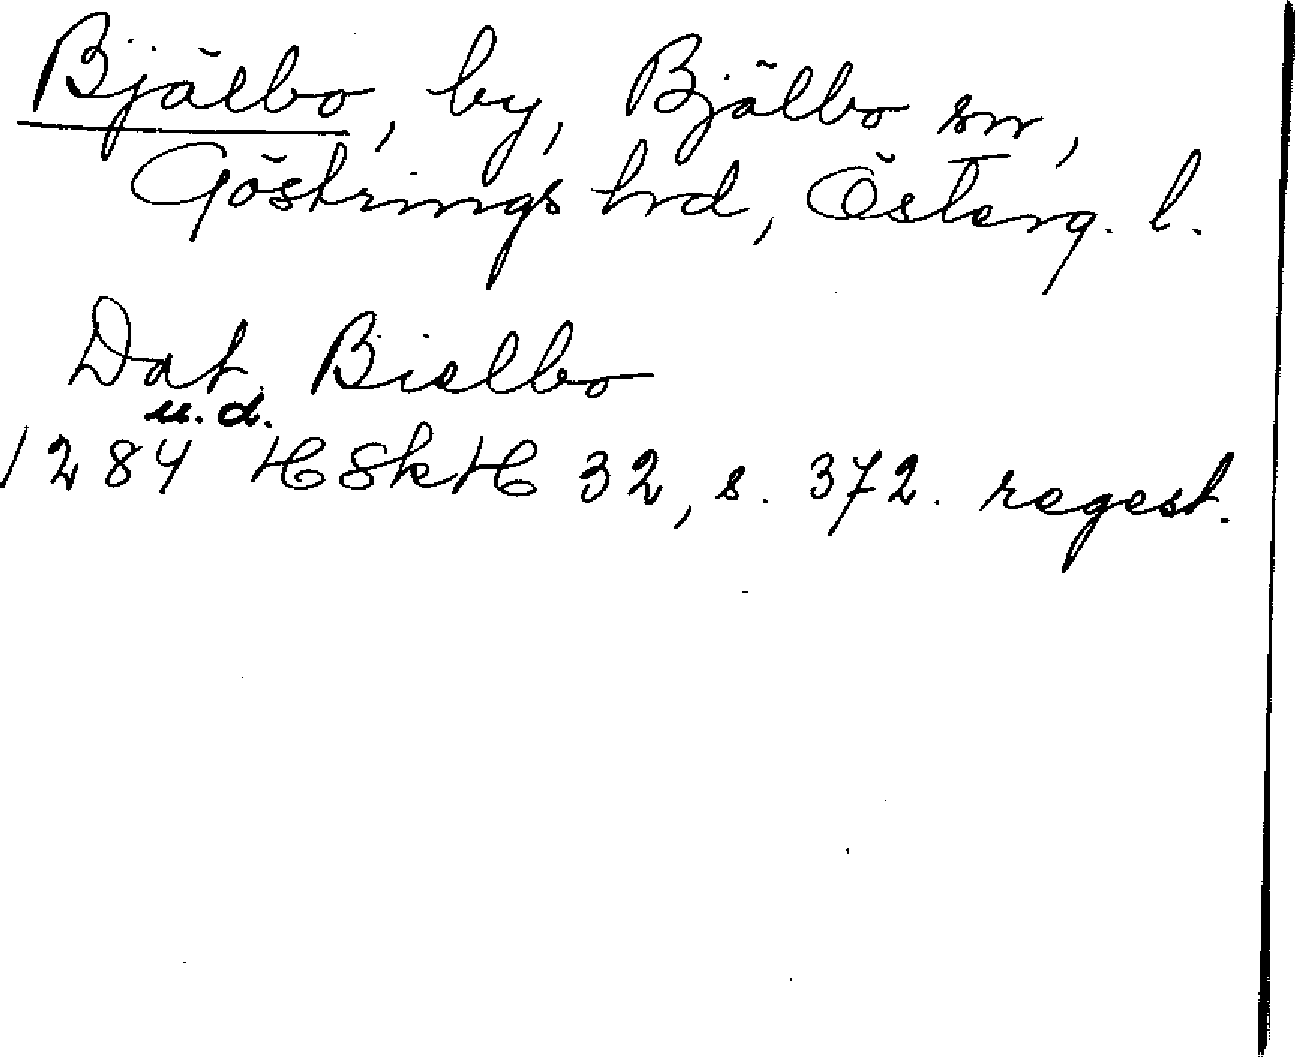 Bjälbo, by, Bjälbo sn,
Göstrings hrd, Österg. l.
Dat. Bielbo
u.d.
1284 HSkH 32, s. 372. regest.